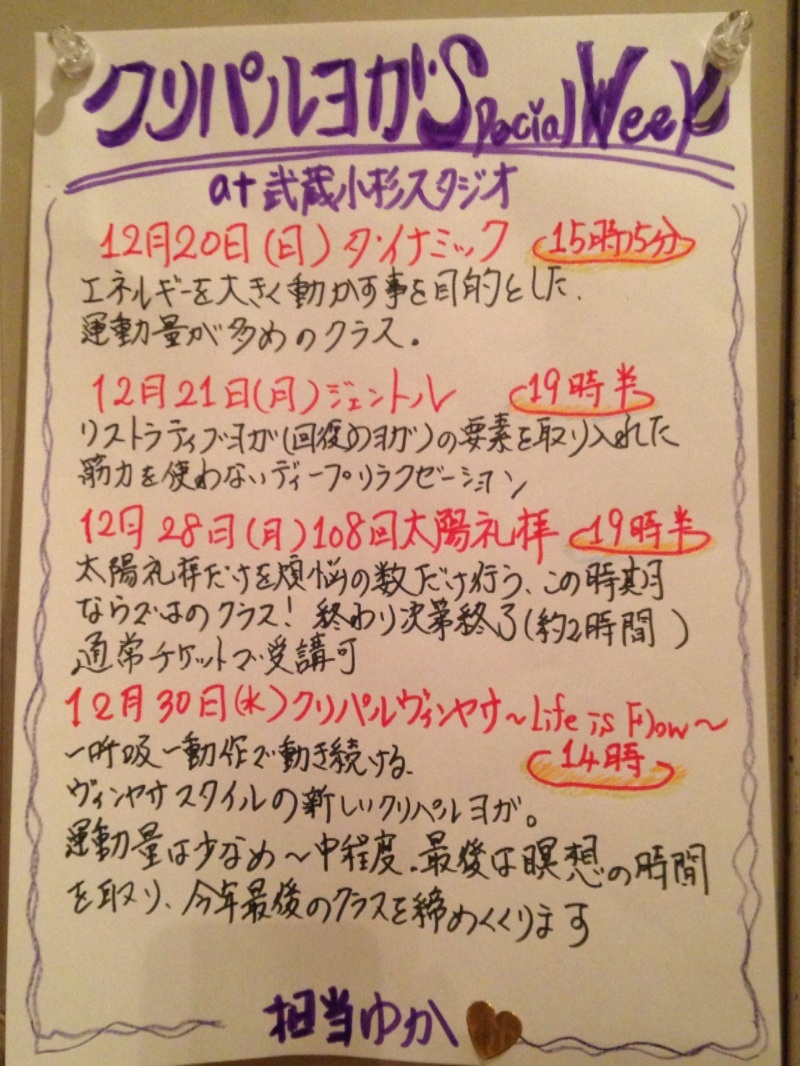 クリパルヨガSpecialWeek
at 武蔵小杉スタジオ
12月20日(日)ダイナミック 15時15分
エネルギーを大きく動かす事を目的とした、
運動量が多めのクラス。
12月21日(月)ジェントル 19時半
リストラティブヨガ(回復のヨガ)の要素を取り入れた
筋力を使わないディープリラクゼーション
12月28日(月)108回太陽礼拝 19時半
太陽礼拝だけを煩悩の数だけ行う、この時期
ならではのクラス！終わり次第終了(約2時間)
通常チケットで受講可
12月30日(水)クリパルヴィンヤサ～Life is Flow～
14時
一呼吸一動作で動き続ける、
ヴィンヤサスタイルの新しいクリパルヨガ。
運動量は少なめ～中程度。最後は瞑想の時間
を取り、今年最後のクラスを締めくくります
担当ゆか